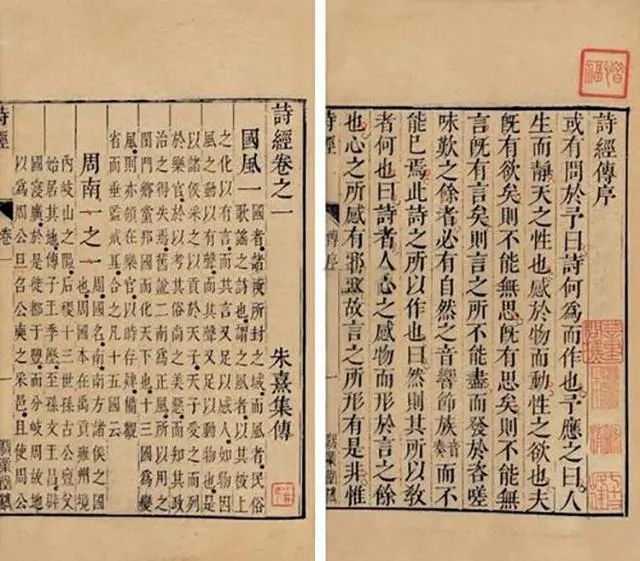 詩經傳序
或有問於予曰詩何為而作也予應之曰人
生而靜天之性也感於物而動性之欲也夫
旣有欲矣則不能無思旣有思矣則不能無
言旣有言矣則言之所不能盡而發於咨嗟
咏歎之餘者必有自然之音響節族音奏而不
能已焉此詩之所以作也曰然則其所以敎
者何也曰詩者人心之感物而形於言之餘
也心之所感有邪正故言之所形有是非惟
詩經
傳序
一
詩經卷之一
朱熹集傳
國風一
國者諸侯所封之域而風者民俗
歌謠之詩也謂之風者以其被上
之化以有言而其言又足以感人如物因
風之動以有聲而其聲又足以動物也是
以諸侯采之以貢於天子天子受之而列
於樂官於以考其俗尚之美惡而知其政
治之得失焉舊說二南為正風所以用之
閨門鄉黨邦國而化天下也十三國為變
風則亦領在樂官以時存肄備觀
省而垂監戒耳合之凡十五國云
周南一之一
周國名南南方諸侯之國
也周國本在禹貢雍州境
內岐山之陽后稷十三世孫古公亶父
始居其地傳子王季歷至孫文王昌辟
國寖廣於是徙都于豐而分岐周故地
以為周公旦召公奭之采邑且使周公
詩經
卷一
一